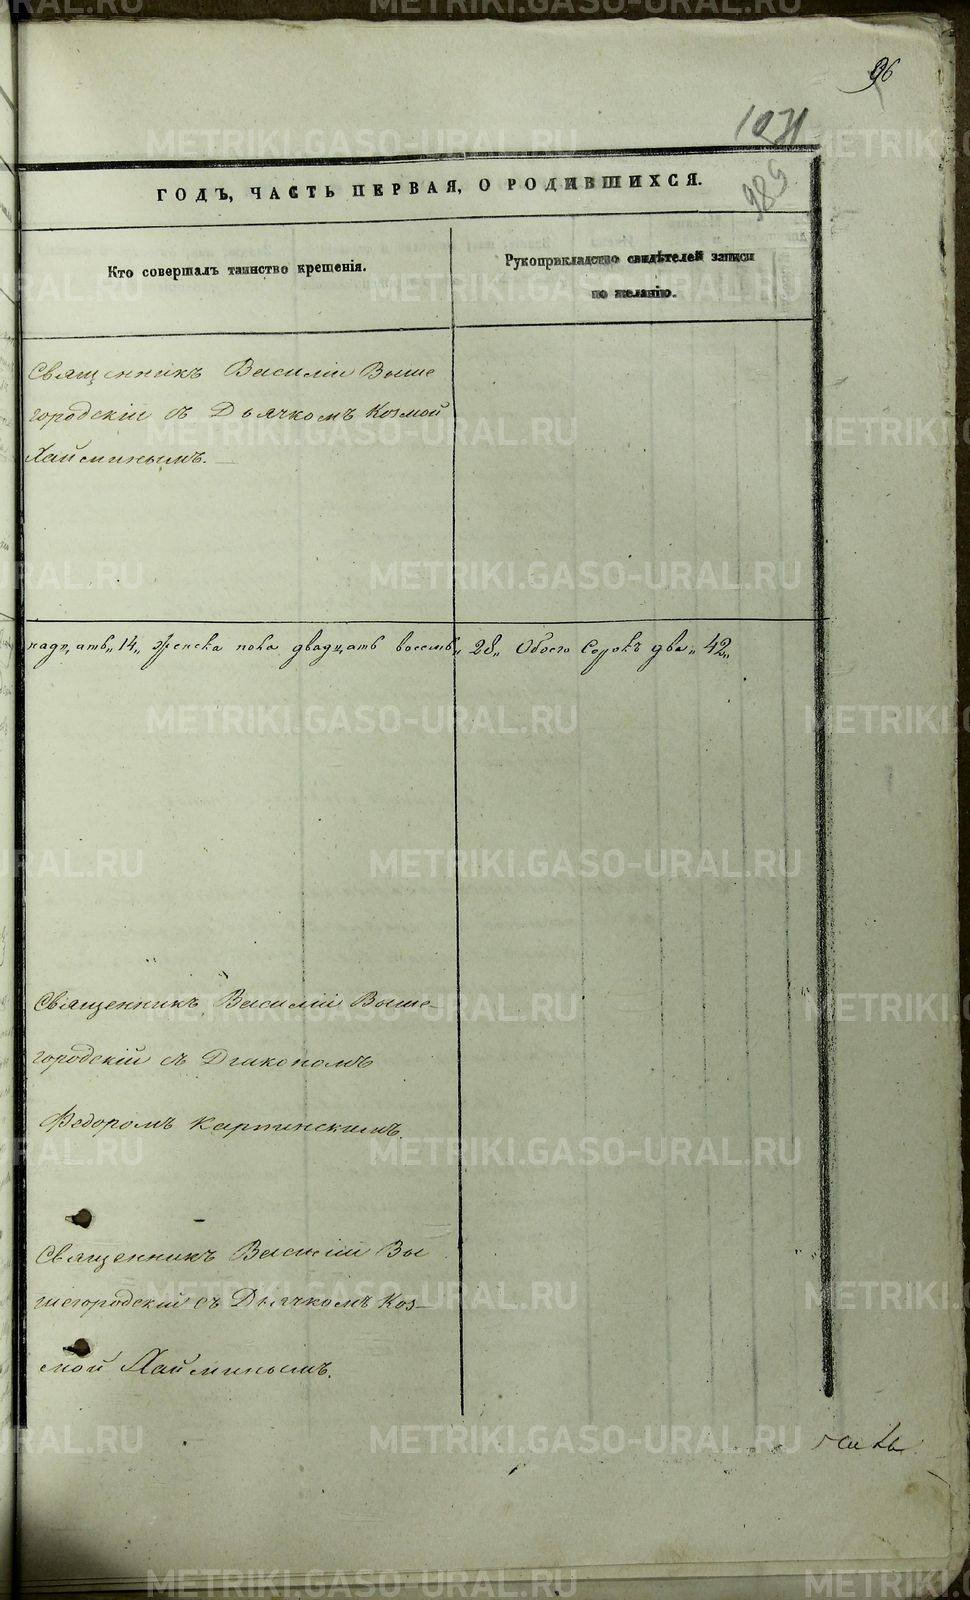 96
1031
985
ГОДЪ, ЧАСТЬ ПЕРВАЯ, О РОДИВШИХСЯ.
Кто совершалъ таинство крещенія.
Рукоприкладство свидѣтелей записи
по желанію.
Священникъ Василій Выше
городскій съ Дьячкомъ Козмой
Хайминымъ.
надцать „14„ Женска пола двадцать восемь „28„ Обоего Сорокъ два „42„
Священникъ Василій Выше
городскій съ Діакономъ
Федоромъ Карпинскимъ.
Священникъ Василій Вы
шегородскій съ Дьячкомъ Коз–
мой Хайминымъ.
METRIKI.GASO-URAL.RU